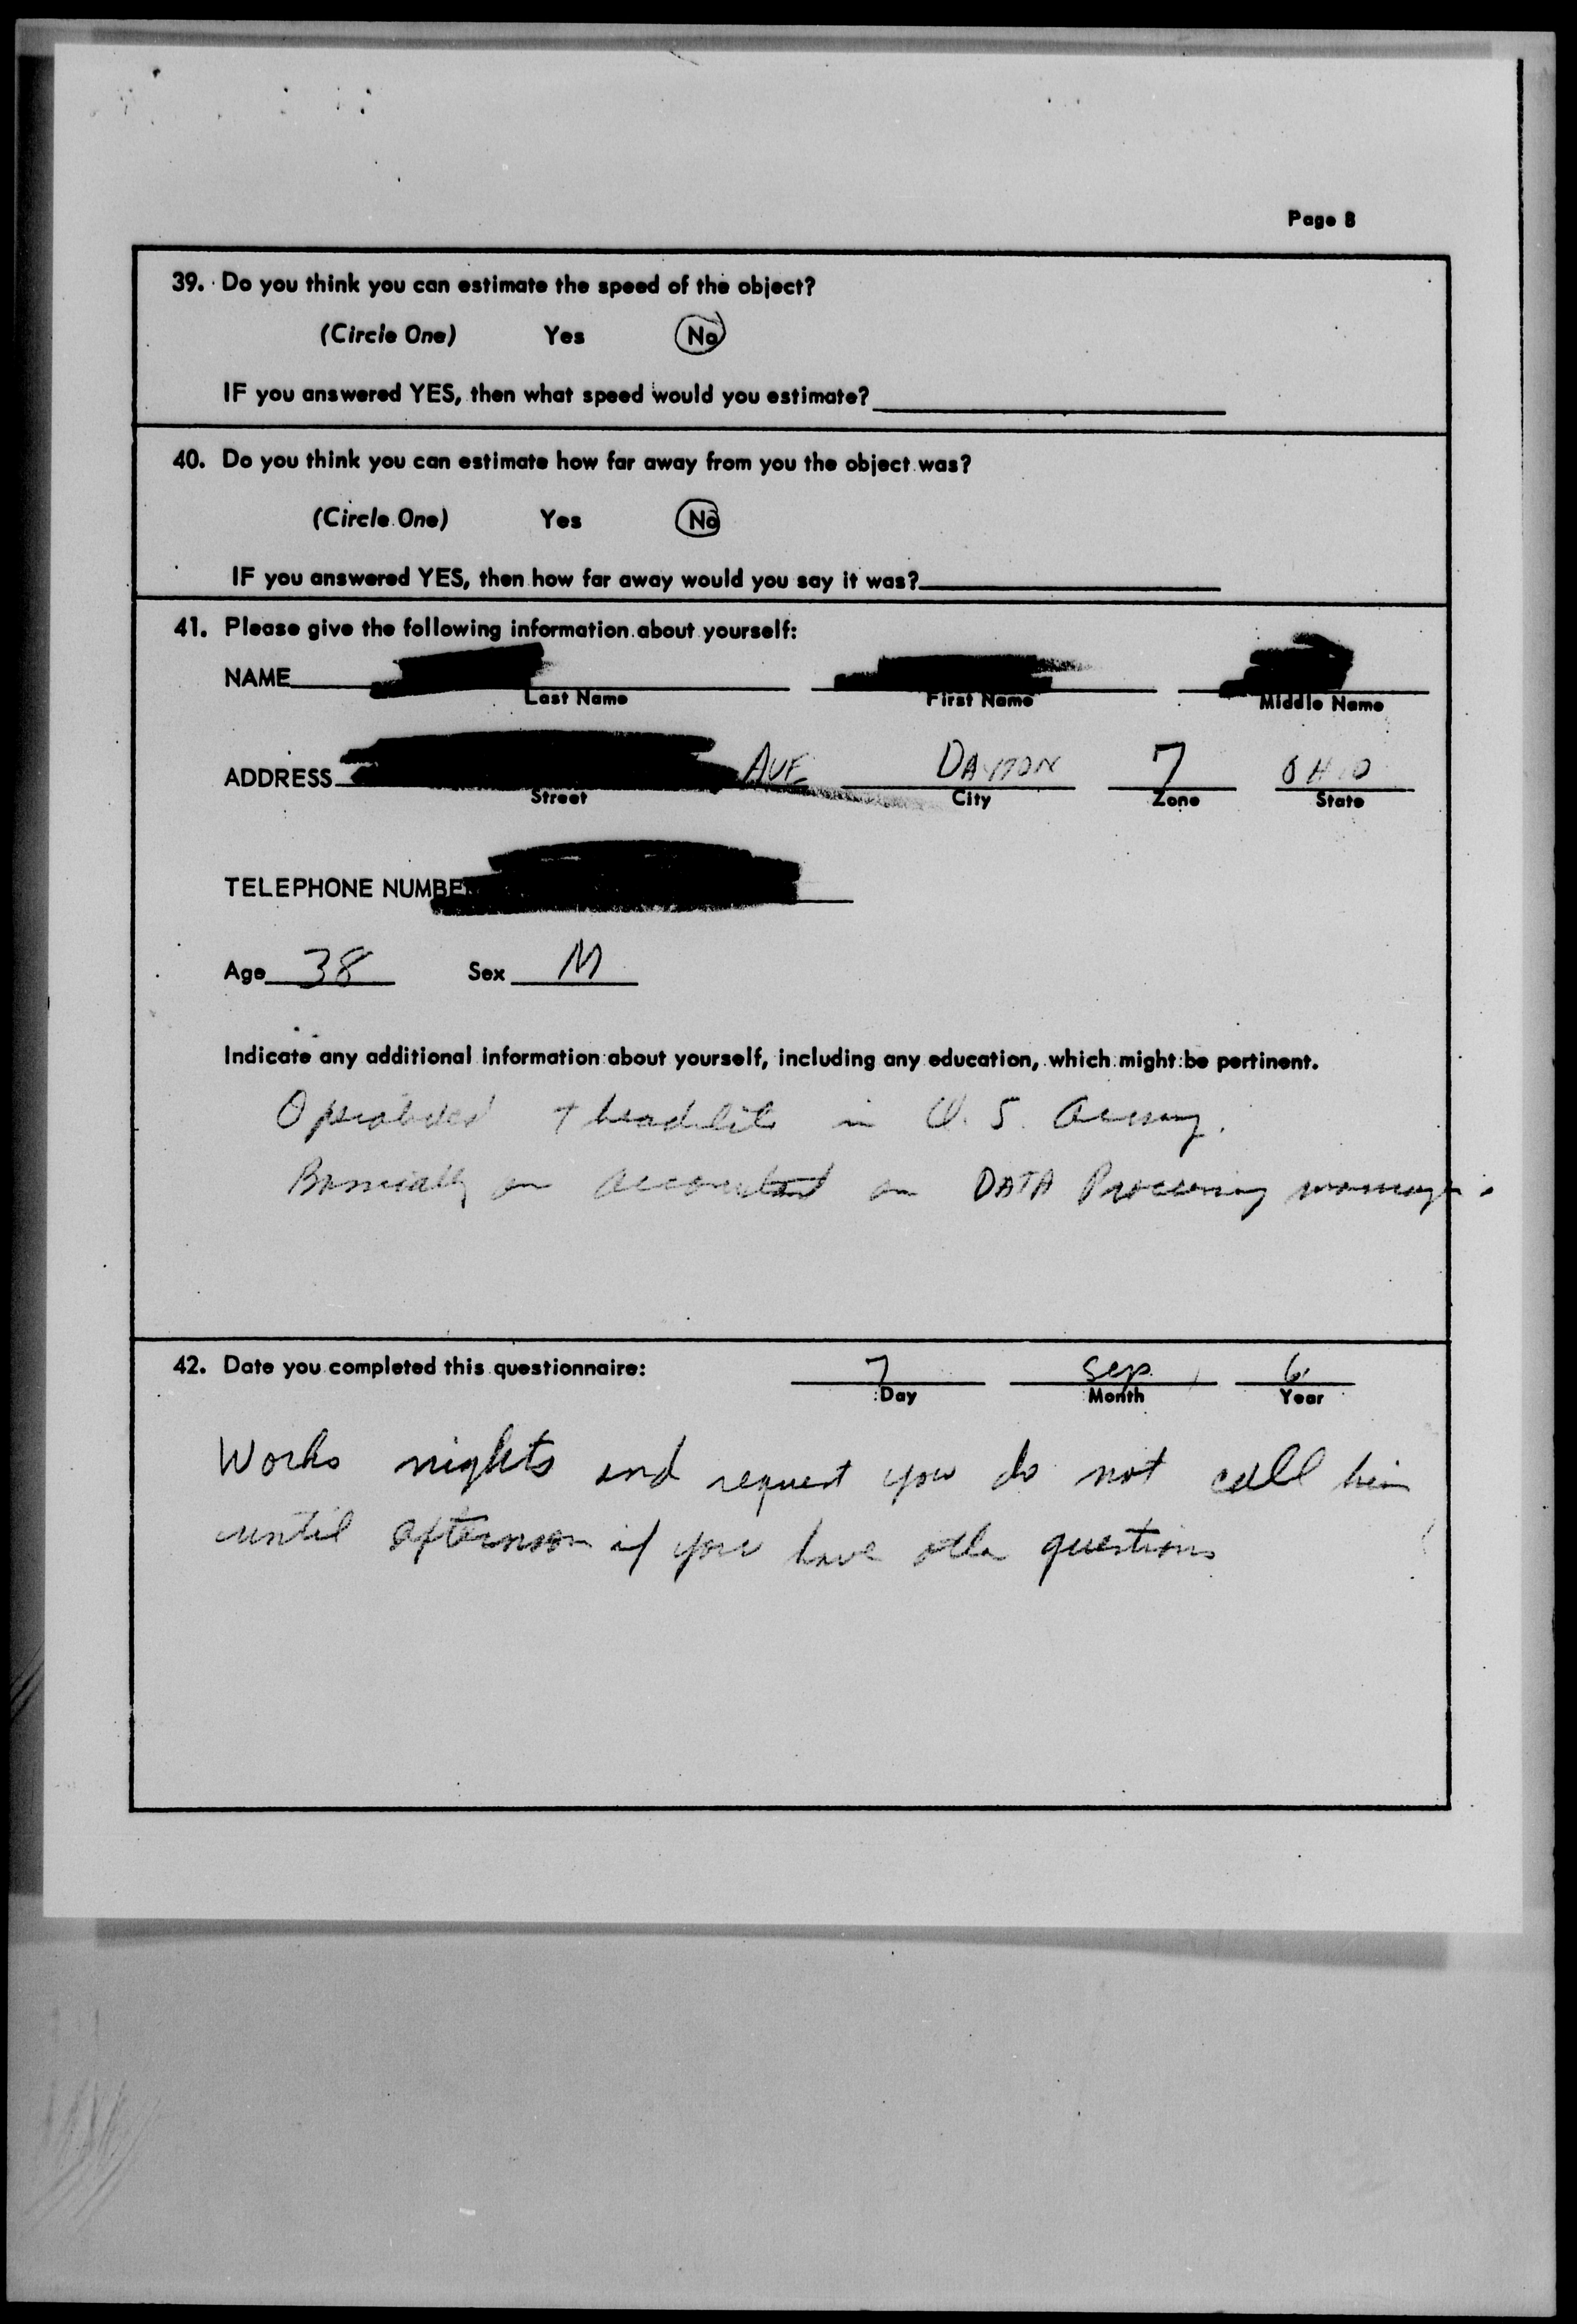 Page 8
39. Do you think you can estimate the speed of the object?
(Circle One) Yes No
IF you answered YES, then what speed would you estimate?
40. Do you think you can estimate how far away from you the object was?
(Circle One) Yes No
IF you answered YES, then how far away would you say it was?
41. Please give the following information about yourself:
NAME
Last Name First Name Middle Name
ADDRESS AVE DAYTON 7 OHIO
Street City Zone State
TELEPHONE NUMBE
Age 38 Sex M
Indicate any additional information about yourself, including any education, which might be pertinent.
in U.S. Army.
an DATA Processing manager.
42. Date you completed this questionnaire: 7 Sep 6
Day Month Year
Works nights and request you do not call him
until afternoon if you have other questions